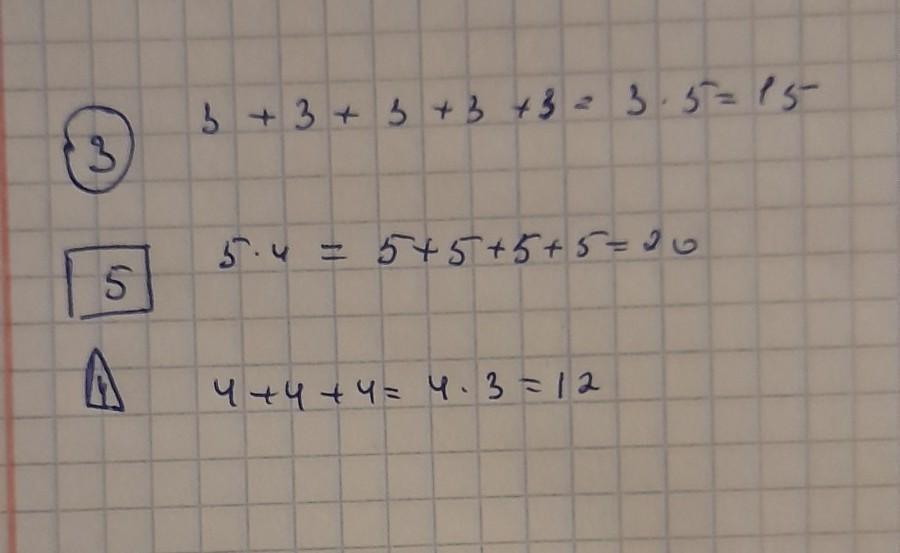 3 3 + 3 + 3 + 3 + 3 = 3 · 5 = 15
5 5 · 4 = 5 + 5 + 5 + 5 = 20
4 4 + 4 + 4 = 4 · 3 = 12